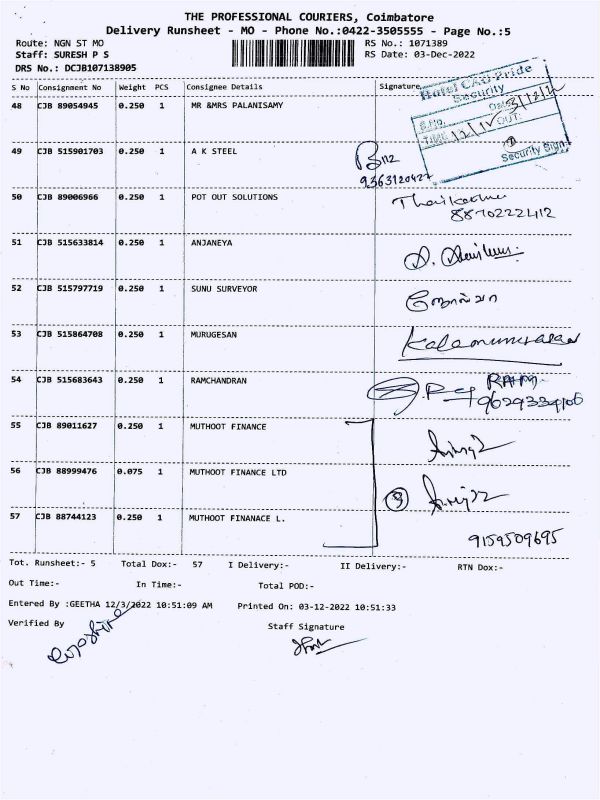 THE PROFESSIONAL COURIERS, Coimbatore
Delivery Runsheet - MO - Phone No.:0422-3505555 - Page No.:5
Route: NGN ST MO RS No.: 1071389
Staff: SURESH P S RS Date: 03-Dec-2022
DRS No.: DCJB107138905
S No Consignment No Weight PCS Consignee Details Signature
Hotel CAG Pride
Security
48 CJB 89054945 0.250 1 MR &MRS PALANISAMY
S.No. Date 3/12/2
TIME OUT:
49 CJB 515901703 0.250 1 A K STEEL
Security Sign
9363120427
50 CJB 89006966 0.250 1 POT OUT SOLUTIONS
8870222412
51 CJB 515633814 0.250 1 ANJANEYA
52 CJB 515797719 0.250 1 SUNU SURVEYOR
53 CJB 515864708 0.250 1 MURUGESAN
54 CJB 515683643 0.250 1 RAMCHANDRAN RAM
55 CJB 89011627 0.250 1 MUTHOOT FINANCE
56 CJB 88999476 0.075 1 MUTHOOT FINANCE LTD
57 CJB 88744123 0.250 1 MUTHOOT FINANACE L.
9159509695
Tot. Runsheet:- 5 Total Dox:- 57 I Delivery:- II Delivery:- RTN Dox:-
Out Time:- In Time:- Total POD:-
Entered By :GEETHA 12/3/2022 10:51:09 AM Printed On: 03-12-2022 10:51:33
Verified By Staff Signature